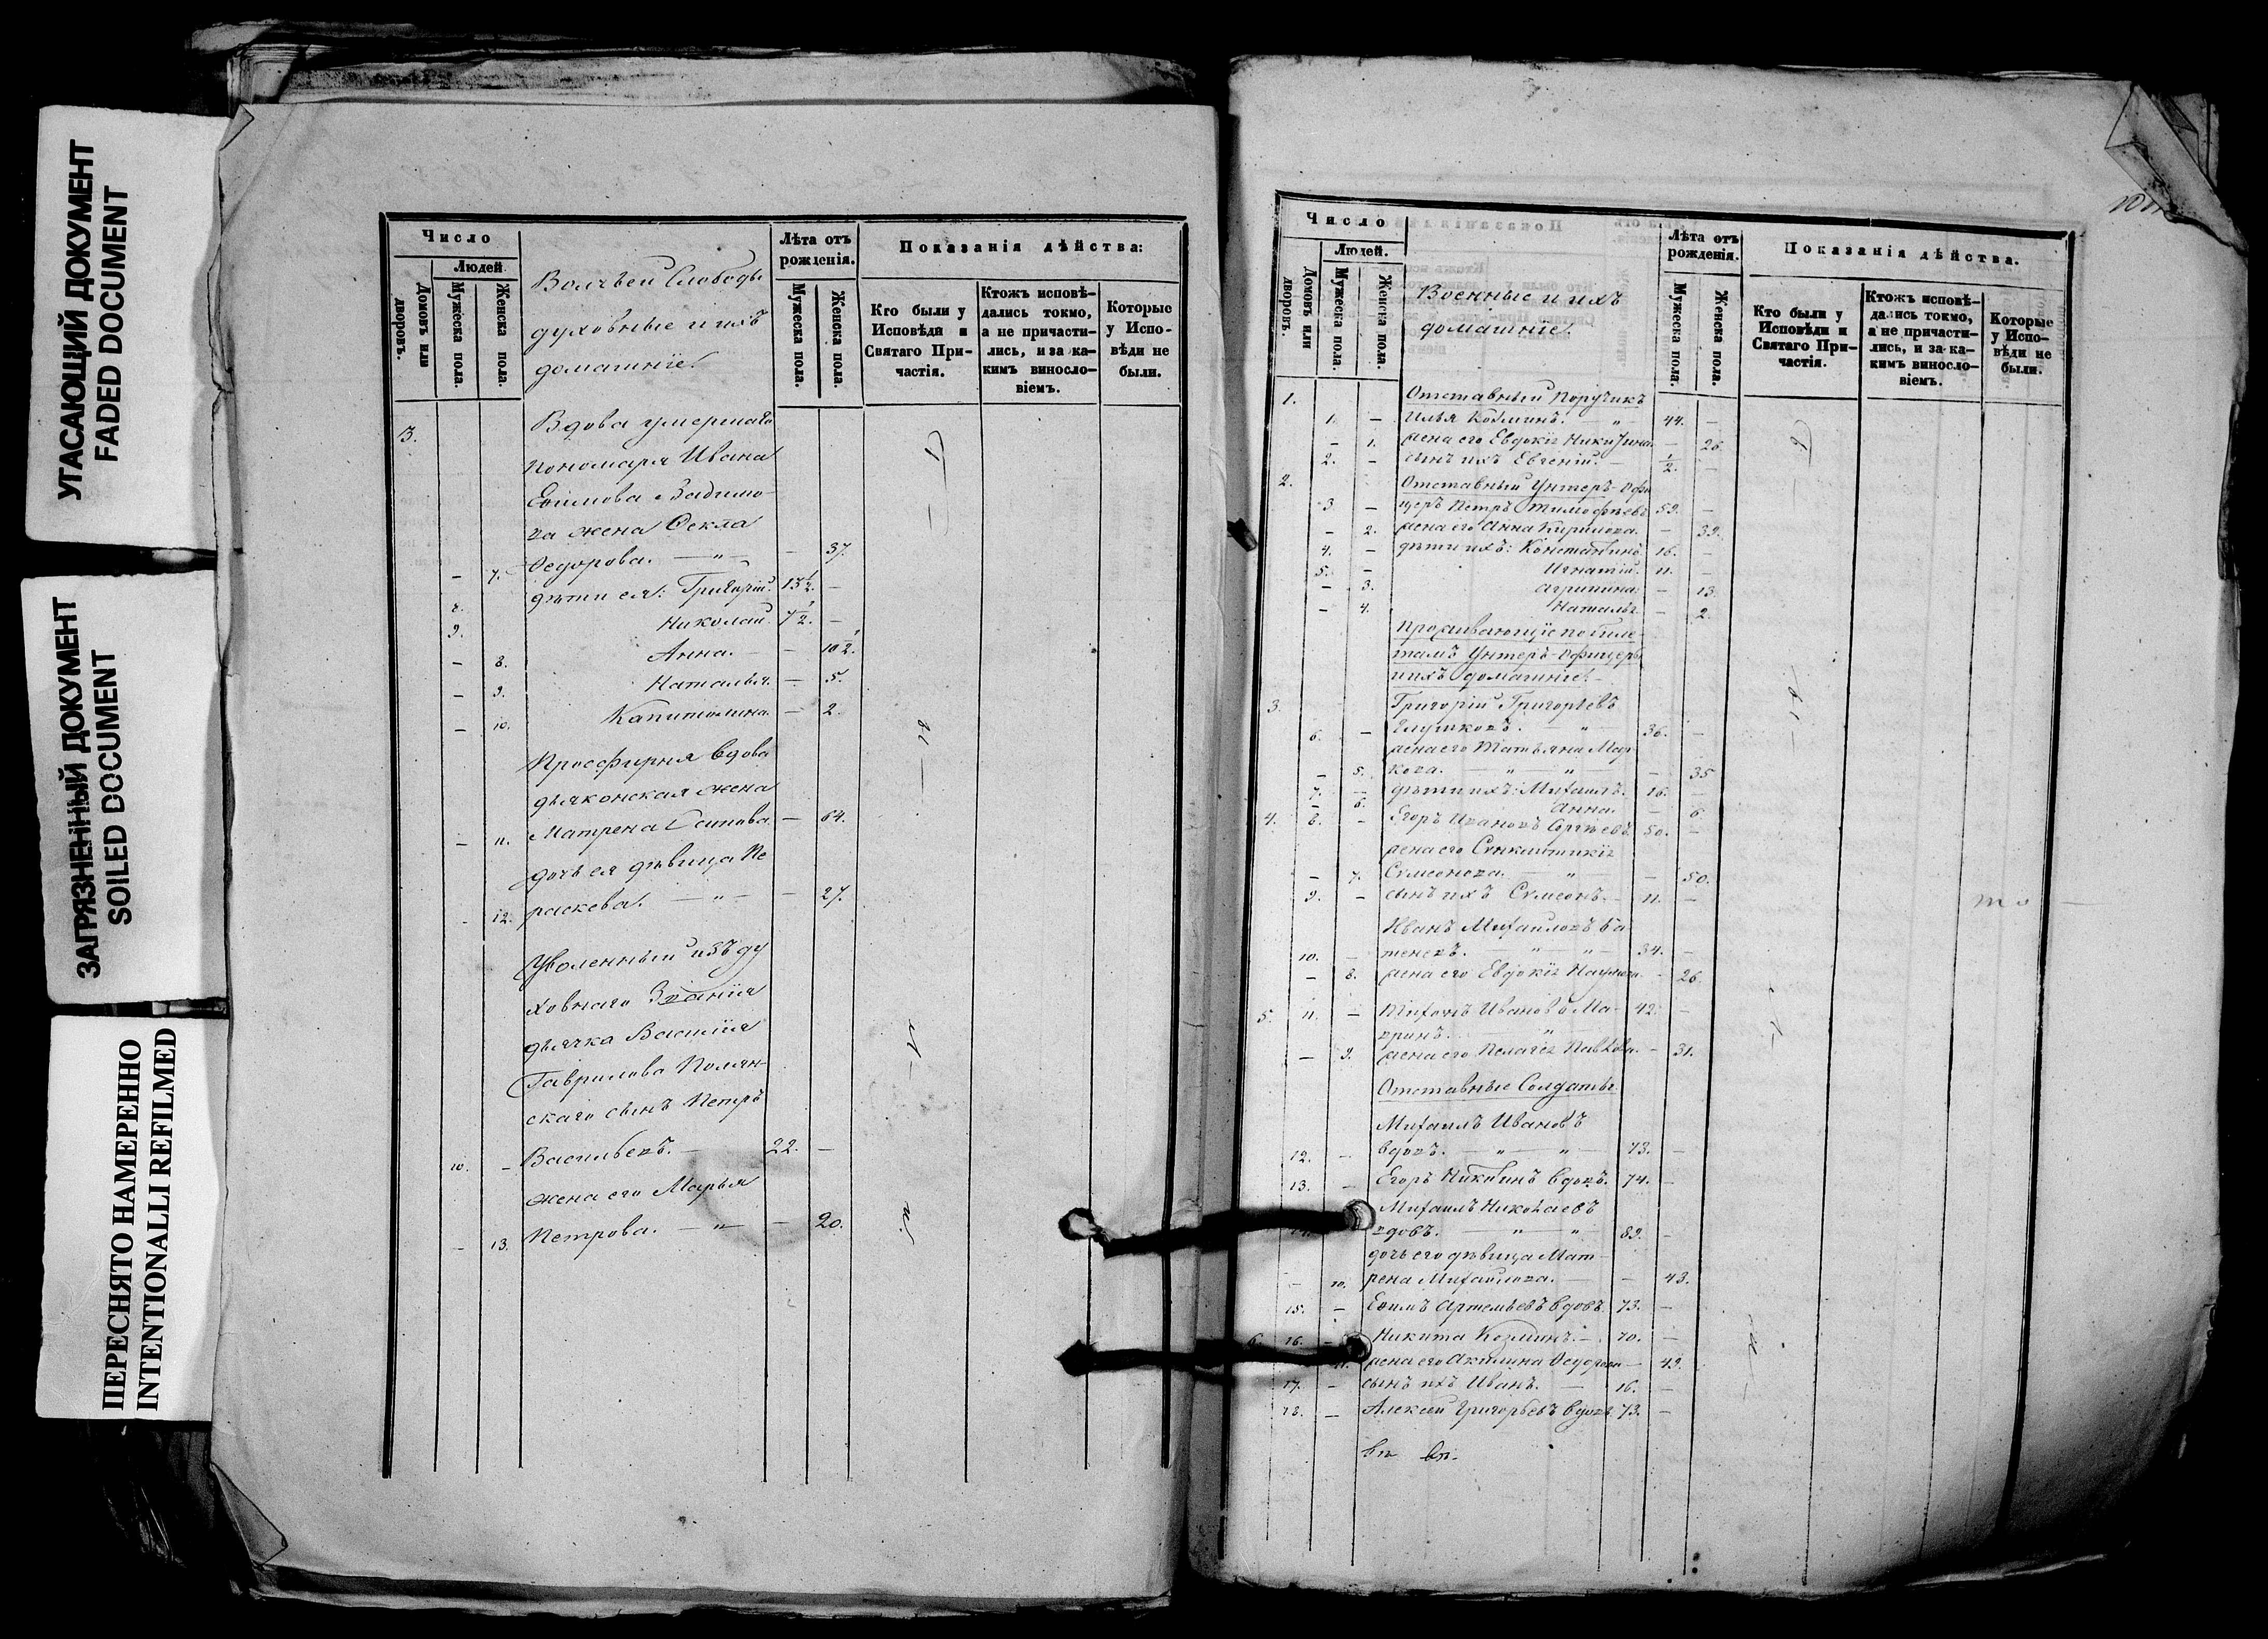 УГАСАЮЩИЙ ДОКУМЕНТ
FADED DOCUMENT
ЗАГРЯЗНЕННЫЙ ДОКУМЕНТ
SOILED DOCUMENT
ПЕРЕСНЯТО НАМЕРЕННО
INTENTIONALLI REFILMED
Число
Людей
Домовъ или дворовъ.
Мужеска пола.
Женска пола.
Волчьей Слободы
духовные и ихъ
домашніе.
Лѣта отъ рожденія.
Мужеска пола.
Женска пола.
Показанія дѣйства:
Кто были у Исповѣди и Святаго Причастія.
Ктожъ исповѣдались токмо, а не причастились, и за какимъ винословіемъ.
Которые у Исповѣди не были.
3. Вдова умершаго
пономаря Ивана
Ефимова
жена Ѳекла
– 7. Ѳедорова. — „ — – 37.
8. дѣти ея: Григорій. 13 1/2. –
9. Николай. 7 1/2. –
– 8. Анна. – – 10 1/2.
– 9. Наталья. – 5.
– 10. Капитолина. – 2.
Просфирня вдова
дьяконская жена
– 11. Матрена – 64.
дочь ея дѣвица Па
– 12. раскева. — „ — – 27.
Уволенный изъ ду
ховнаго званія
дьячка Василія
Гаврилова Полян-
скаго сынъ Петръ
10. – Васильевъ. – 22. –
жена его Марья
– 13. Петрова. — „ — – 20.
Число
Людей.
Домовъ или дворовъ.
Мужеска пола.
Женска пола.
Военные и ихъ
домашніе.
Лѣта отъ рожденія.
Мужеска пола.
Женска пола.
Показанія дѣйства.
Кто были у Исповѣди и Святаго Причастія.
Ктожъ исповѣдались токмо, а не причастились, и за какимъ винословіемъ.
Которые у Исповѣди не были.
1. Отставный Поручикъ
1. – Илья Козминъ. — „ 44. –
– 1. жена его Евдокія Никитина. – 26
2. – сынъ ихъ Евгеній. – 1/2. –
2. Отставный Унтеръ-Офи
3 – церъ Петръ Тимофѣевъ 59. –
– 2. жена его Анна Кирилова. – 39.
4. – дѣти ихъ: Константинъ. 16. –
5. – Игнатій. 11. –
– 3. Агрипина. – 13.
– 4. Наталья – 2.
Проживающіе по биле-
тамъ Унтеръ-Офицеры
и ихъ домашніе.
3. Григорій Григорьевъ
6. – Глушковъ. — „ — 36. –
жена его Татьяна Мар
– 5. кова. — „ — „ — – 35
7. – дѣти ихъ: Михаилъ. 16. –
– 6. Анна. – 6
4. 8. – Егоръ Ивановъ Сергѣевъ 50. –
жена его Сунклитикія
– 7. Сумеонова. — „ — – 50.
9. – сынъ ихъ Сумеонъ. – 11. –
Иванъ Михаиловъ
10. – — „ — „ — 34. –
– 8. жена его Евдокія Наумова – 26
5. 11. – Тихонъ Ивановъ Ма- 42. –
вринъ. — „
– 9. жена его Пелагея Павлова. – 31.
Отставные Солдаты
Михаилъ Ивановъ
12. – вдовъ. — „ — „ — 73. –
13. – Егоръ Никитинъ вдовъ. 74. –
Михаилъ Николаевъ
вдовъ. — „ — „ — 89. –
дочь его дѣвица Мат-
– 10. рена Михаилова. — – 43.
15. – Ефимъ Артемьевъ вдовъ. 73. –
6. 16. – Никита Козминъ. – 70. –
11. жена его Акилина Ѳедорова – 49.
17. – сынъ ихъ Иванъ. — 16. –
18. – Алексѣй Григорьевъ вдовъ. 73. –